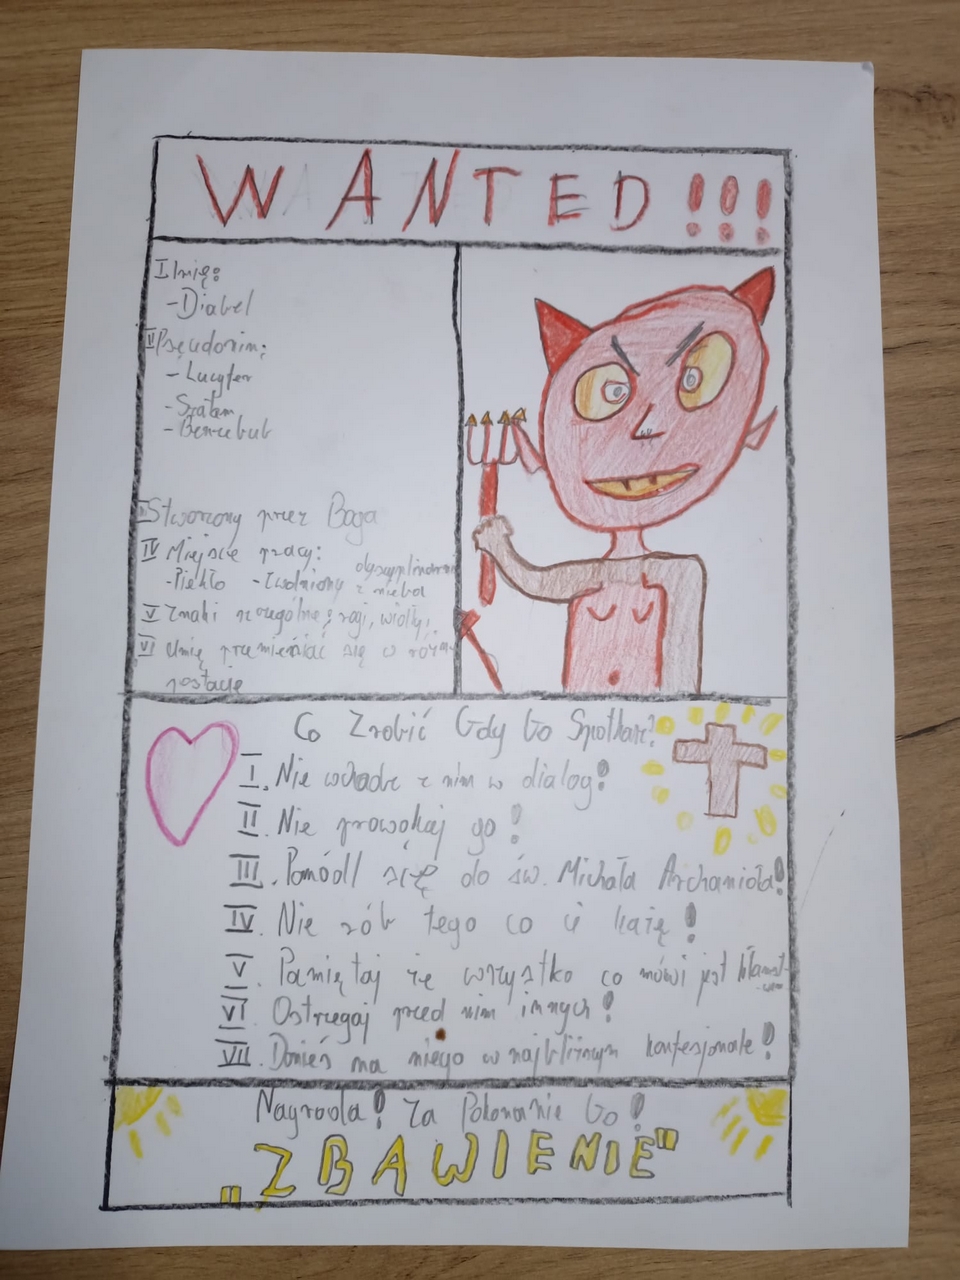 WANTED!!!
I Imię:
- Diabeł
II Pseudonim:
- Lucyfer
- Szatan
- Bencebub
III Stworzony przez Boga
IV Miejsce pracy:
- Piekło - Zwolniony dyscyplinarni z nieba
V Znaki szczególne: rogi, widły,
VI Umię przemieniać się w różn
postacie
Co Zrobić Gdy Go Spotkasz?
I. Nie wchadź z nim w dialog!
II. Nie prowokaj go!
III. Pomódl się do św. Michała Archanioła!
IV. Nie rób tego co ci każę!
V. Pamiętaj że wszystko co mówi jest kłamst-
wem
VI. Ostrzegaj przed nim innych!
VII. Donieś na niego w najbliższym konfesjonale!
Nagroda! Za Pokonanie Go!
„ZBAWIENIE"